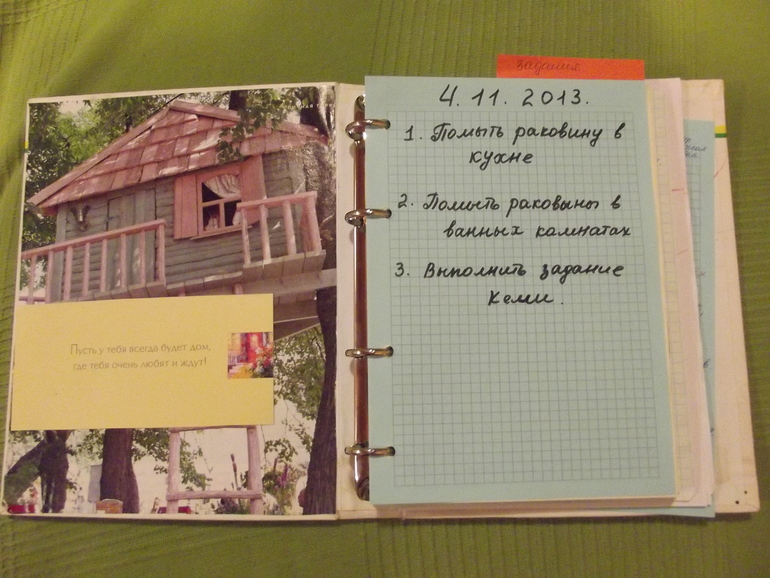 задания
4. 11. 2013.
1. Помыть раковину в
кухне
2. Помыть раковины в
ванных комнатах
3. Выполнить задание
Кеми.
Пусть у тебя всегда будет дом,
где тебя очень любят и ждут!